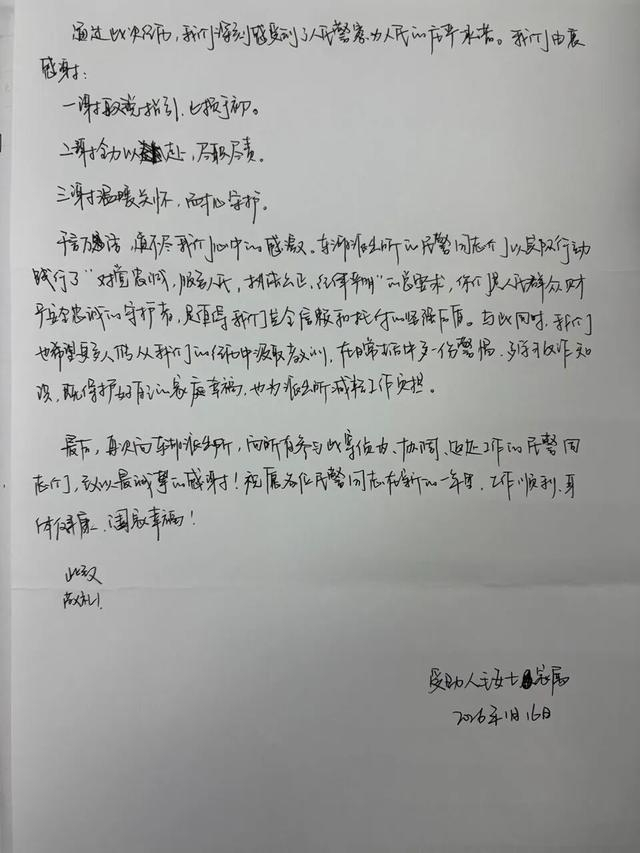 通过此次经历,我们深刻感受到了人民警察为人民的庄严承诺。我们由衷
感谢:
一谢权威指引,七损于初。
二谢全力以赴,尽职尽责。
三谢温暖关怀,耐心守护。
千言万语,道不尽我们心中的感激。东湖派出所的民警同志们以实际行动
践行了"对党忠诚,服务人民,执法公正,纪律严明"的总要求,你们是人民群众财
平安全忠诚的守护者,是值得我们完全信赖和托付的坚强后盾。与此同时,我们
也希望更多人能从我们的经历中汲取教训,在日常生活中多一份警惕,多学习反诈知
识,既保护好自己的家庭幸福,也为派出所减轻工作负担。
最后,再次向东湖派出所,向所有参与此事侦办、协调、追赃工作的民警同
志们,致以最诚挚的感谢!祝愿各位民警同志在新的一年里,工作顺利、身
体健康、阖家幸福!
此致
敬礼!
受助人王女士家属
2026年1月16日